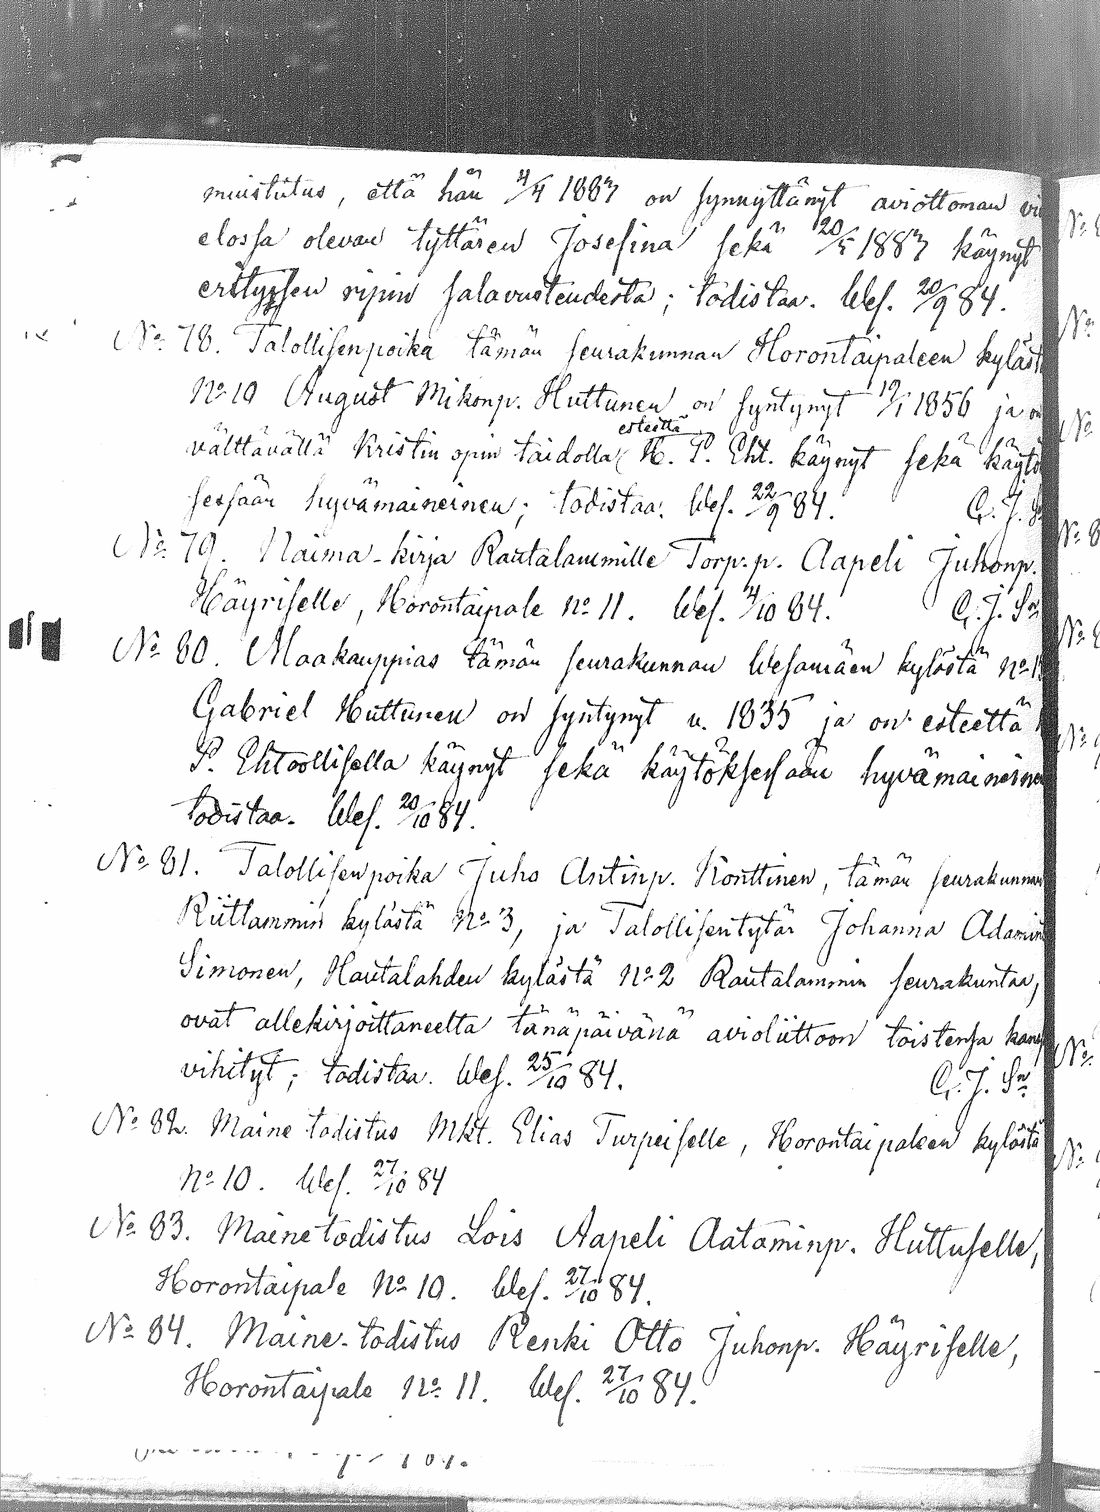 muistutus, että hän 4/4 1883 on synnyttänyt aviottoman
elossa olevan tyttären Josefina sekä 20/5 1883 käynyt
erityisen ripin salavuoteudesta; todistaa. Wes. 20/9 84.
No 78. Talollisenpoika tämän seurakunnan Horontaipaleen kyläst
No 10 August Mikonp. Huttunen on syntynyt 19/1 1856 ja
välttävällä Kristin opin taidolla esteettä H. P. Eht. käynyt sekä käytö
sessään hyvämaineinen; todistaa. Wes. 22/9 84. G. J.
No 79. Naima-kirja Rautalammille Torp.p. Aapeli Juhonp.
Häyriselle, Horontaipale No 11. Wes. 4/10 84. G. J. Sn
No 80. Maakauppias tämän seurakunnan Wesamäen kylästä No
Gabriel Huttunen on syntynyt v. 1835 ja on esteettä
P. Ehtoollisella käynyt sekä käytöksessään hyvämaineinen
todistaa. Wes. 20/10 84.
No 81. Talollisenpoika Juho Antinp. Konttinen, tämän seurakunnan
Riitlammin kylästä No 3, ja Talollisentytär Johanna Adamin
Simonen, Hautalahden kylästä No 2 Rautalammin seurakuntaa,
ovat allekirjoittaneelta tänäpäivänä avioliittoon toistensa kans
vihityt; todistaa. Wes. 25/10 84. G. J. Sn
No 82. Maine todistus Mkt. Elias Turpeiselle, Horontaipaleen kylästä
No 10. Wes. 27/10 84
No 83. Mainetodistus Lois Aapeli Aataminp. Huttuselle,
Horontaipale No 10. Wes. 27/10 84.
No 84. Maine-todistus Renki Otto Juhonp. Häyriselle,
Horontaipale No 11. Wes. 27/10 84.